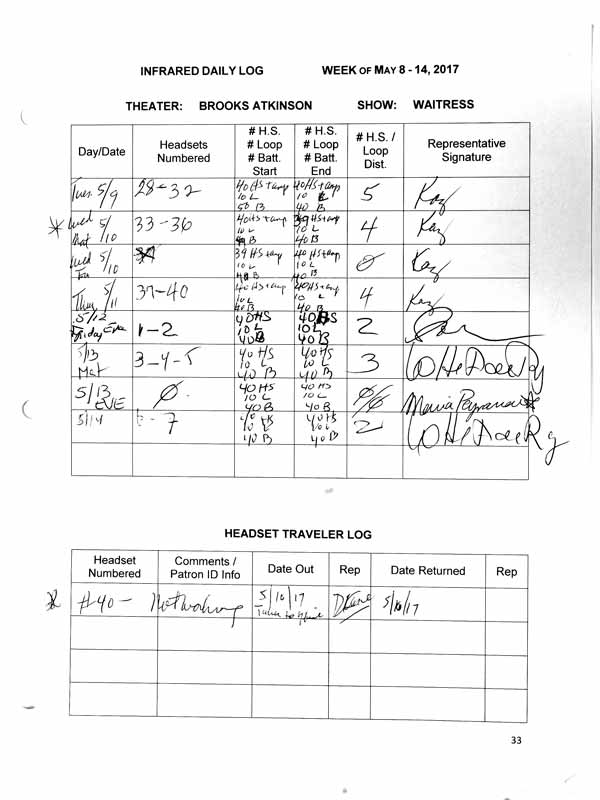 INFRARED DAILY LOG WEEK OF MAY 8 - 14, 2017
THEATER: BROOKS ATKINSON SHOW: WAITRESS
Day/Date Headsets Numbered # H.S. # Loop # Batt. Start # H.S. # Loop # Batt. End # H.S. / Loop Dist. Representative Signature
Tues. 5/9 28-32 40 HS + amp 10 L 50 B 40 HS + amp 10 L 40 B 5 Kay
* Wed Mat 5/10 33-36 40 HS + amp 10 L 39 HS + amp 10 L 40 B 4 Kay
Wed 5/10 39 HS + amp 10 L 40 HS + amp 10 L 40 B 0 Kay
Thurs 5/11 37-40 40 HS + amp 10 L 40 B 40 HS + amp 10 L 40 B 4 Kay
5/12 Friday Eve 1-2 40 HS 10 L 40 B 40 HS 10 L 40 B 2
5/13 Mat 3-4-5 40 HS 10 L 40 B 40 HS 10 L 40 B 3
5/13 EVE 0 40 HS 10 L 40 B 40 HS 10 L 40 B 0/0 Maria
5/14 6-7 40 HS 10 L 40 B 40 HS 10 L 40 B 2
HEADSET TRAVELER LOG
Headset Numbered Comments / Patron ID Info Date Out Rep Date Returned Rep
* #40 - Not working 5/10/17 Taken to 5/10/17
33